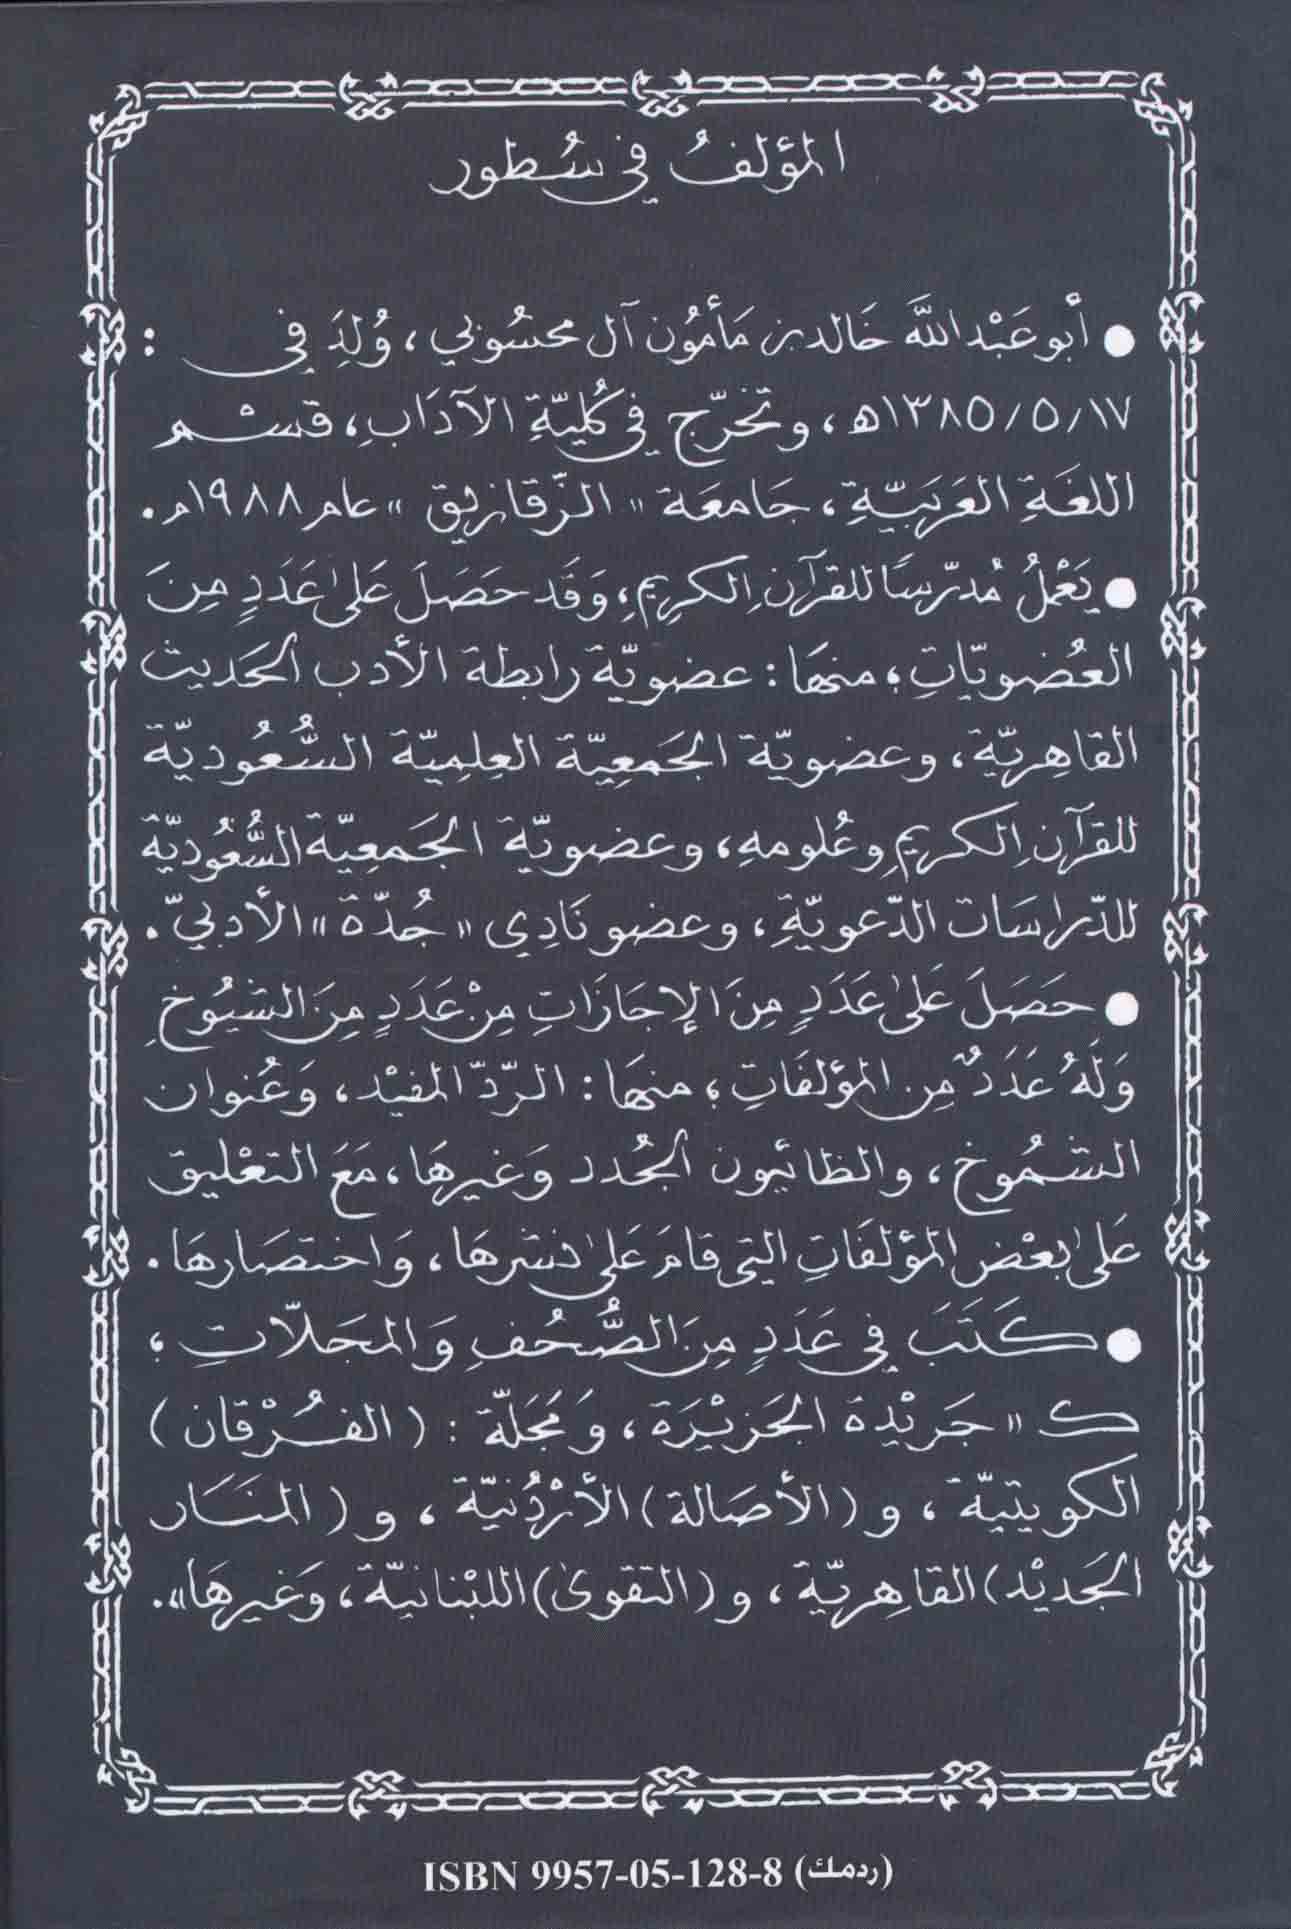 المؤلفُ في سُطور
● أبو عَبْد اللهَّ خَالد بن مَأمُون آل محسُوبي، وُلِدَ في :
١٣٨٥/٥/١٧هـ، وتخرّج في كُليّةِ الآدَابِ، قسْم
اللغَةِ العَرَبيّةِ، جَامعَة "الزّقازيق" عام ١٩٨٨م.
● يَعْملُ مُدرّسًا للقرآنِ الكريمِ، وَقَد حَصَلَ عَلى عَدَدٍ مِنَ
العُضويّاتِ؛ منهَا: عضويّة رابطة الأدب الحَديث
القاهِريّة، وعضويّة الجَمعِيّة العِلمِيّة السُّعُوديّة
للقرآنِ الكريمِ وعُلومهِ، وعضويّة الجَمعِيّة السُّعُوديّة
للدّراسَات الدّعويّةِ، وعضو نَادِي "جُدّة" الأدبيّ.
● حَصَلَ عَلى عَدَدٍ مِنَ الإجَازَاتِ مِنْ عَدَدٍ مِنَ الشيُوخِ
وَلَهُ عَدَدٌ مِن المؤلفَاتِ؛ منهَا: الرّدّ المفيْد، وَعُنوان
الشمُوخ، والظائيون الجُدد وَغيرهَا، مَعَ التعْليق
عَلى بعْض المؤلفَاتِ التي قامَ عَلى نشرهَا، وَاختصَارهَا.
● كَتَبَ في عَدَدٍ مِنَ الصُّحُفِ وَالمجَلّاتِ؛
ك "جَريْدة الجَزيْرَة، وَمَجَلّة: (الفُرْقان)
الكويتيّة، و (الأصَالة) الأرْدُنيّة، و (المنَار
الجَديْد) القاهِريّة، و (التقوىٰ) اللبْنانيّة، وَغيرهَا".
ISBN 9957-05-128-8 (ردمك)